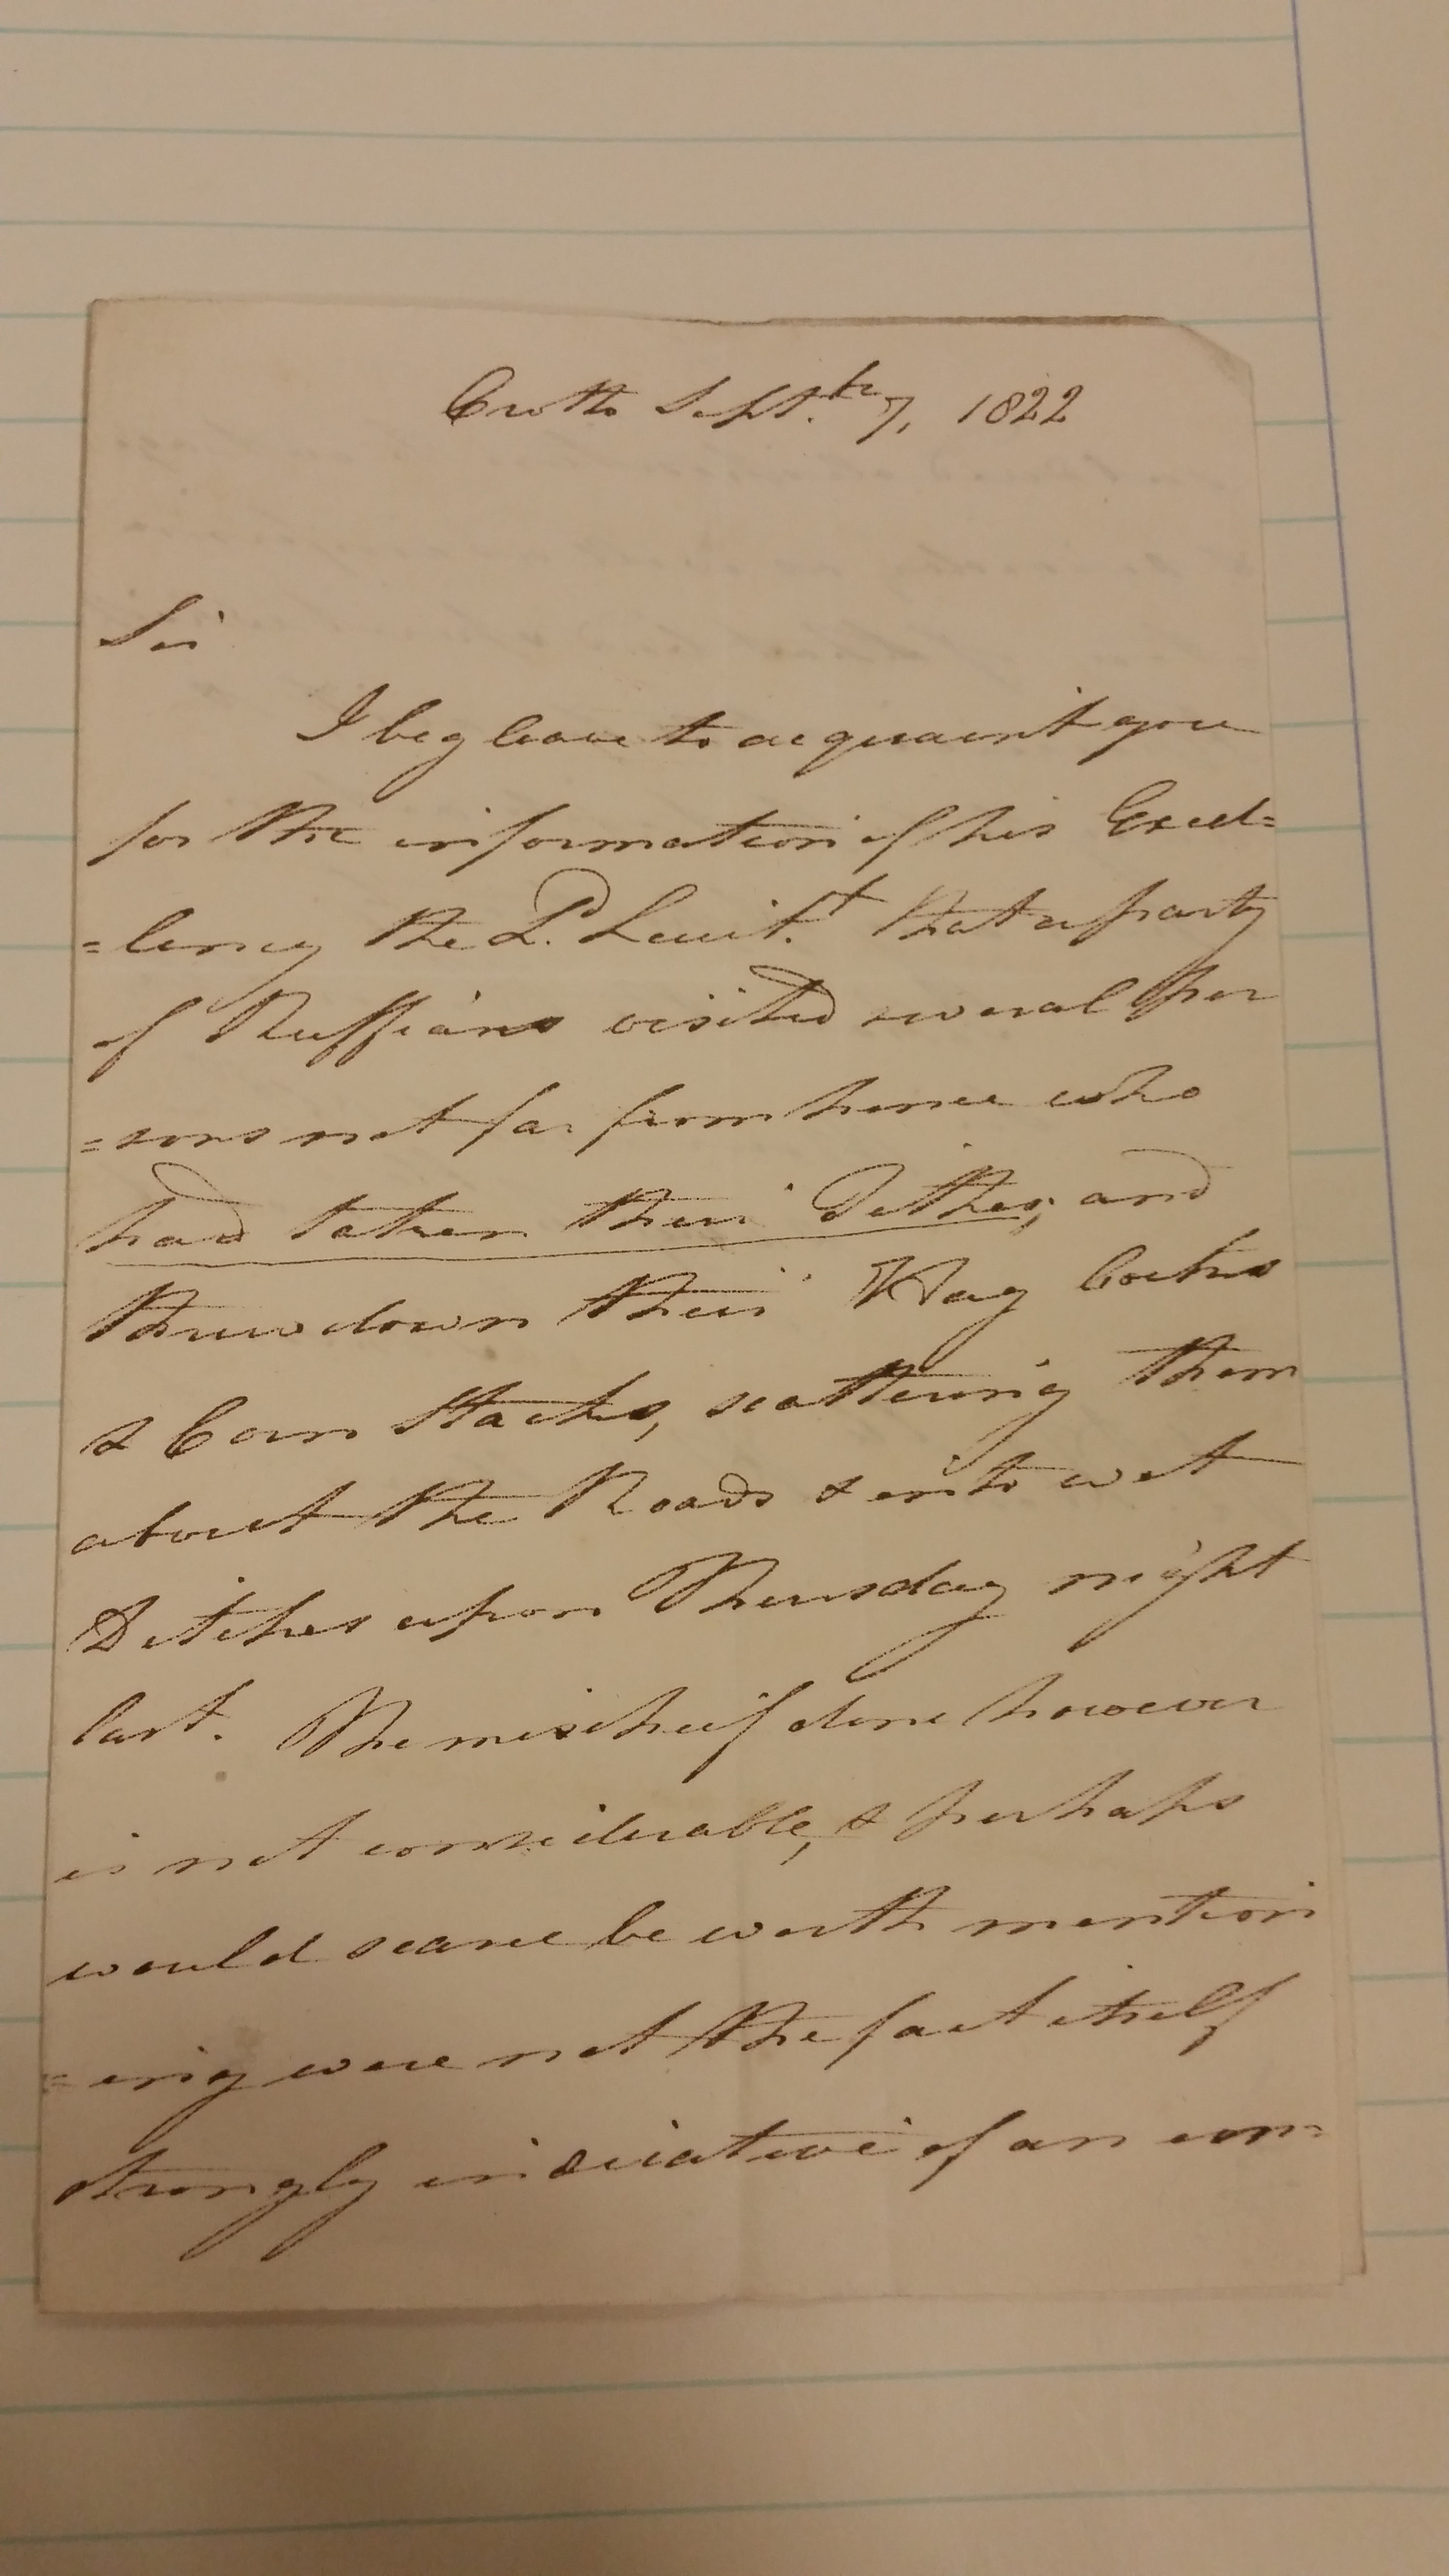 Crotto Sept.br 7, 1822
Sir
I beg leave to acquaint you
for the information of his Excel=
=lency the Ld. Lieut.t that a party
of Ruffians visited several Per
=sons not far from hence who
had taken their Tithes; and
threw down their Hay Cocks
& Corn Stacks, scattering them
about the Roads & into wet
Ditches upon Thursday night
last. The mischeif done however
is not considerable, & perhaps
would scarce be worth mention
=ing were not the fact itself
strongly indicative of an un=